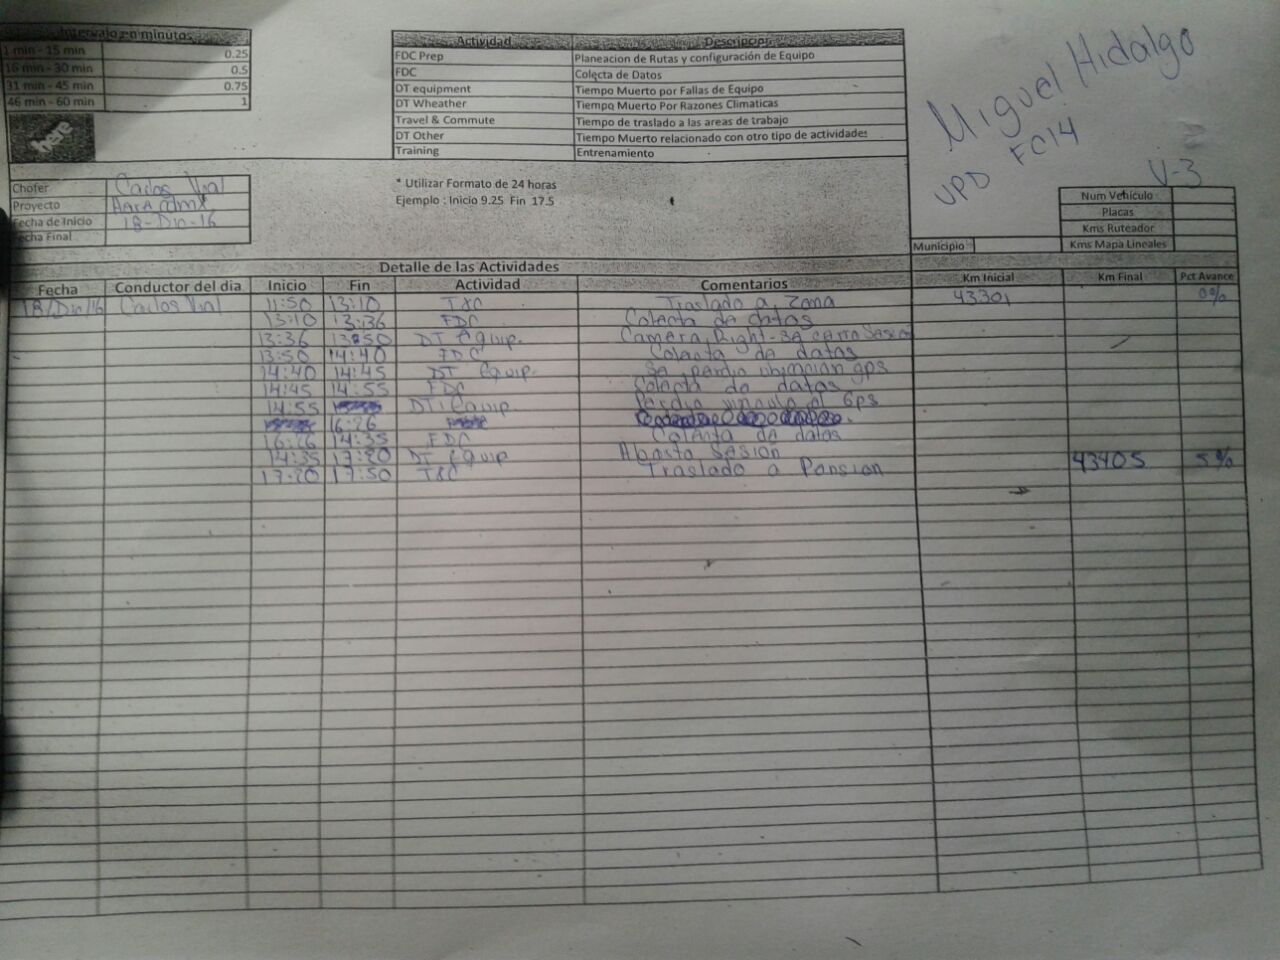 Intervalo en minutos
1 min - 15 min 0.25
16 min - 30 min 0.5
31 min - 45 min 0.75
46 min - 60 min 1
here
Actividad Descripcion
FDC Prep Planeacion de Rutas y configuración de Equipo
FDC Colecta de Datos
DT equipment Tiempo Muerto por Fallas de Equipo
DT Wheather Tiempo Muerto Por Razones Climaticas
Travel & Commute Tiempo de traslado a las areas de trabajo
DT Other Tiempo Muerto relacionado con otro tipo de actividades
Training Entrenamiento
Miguel Hidalgo
UPD FC14
V-3
* Utilizar Formato de 24 horas
Ejemplo : Inicio 9.25 Fin 17.5
Chofer Carlos
Proyecto
Fecha de Inicio 18-Dic-16
Fecha Final
Num Vehículo
Placas
Kms Ruteador
Municipio Kms Mapa Lineales
Detalle de las Actividades
Fecha Conductor del dia Inicio Fin Actividad Comentarios Km Inicial Km Final Pct Avance
18/Dic/16 Carlos 11:50 13:10 T&C Traslado a Zona 43301 0%
13:10 13:36 FDC Colecta de datos
13:36 13:50 DT Equip. Camera Right se cerro Sesion
13:50 14:40 FDC Colecta de datos
14:40 14:45 DT Equip. Se perdio ubicacion gps
14:45 14:55 FDC Colecta de datos
14:55 DT Equip. Perdio vinculo al Gps
16:26
16:26 14:35 FDC Colecta de datos
14:35 17:20 DT Equip Aborto sesion 43405 5%
17:20 17:50 T&C Traslado a Pension